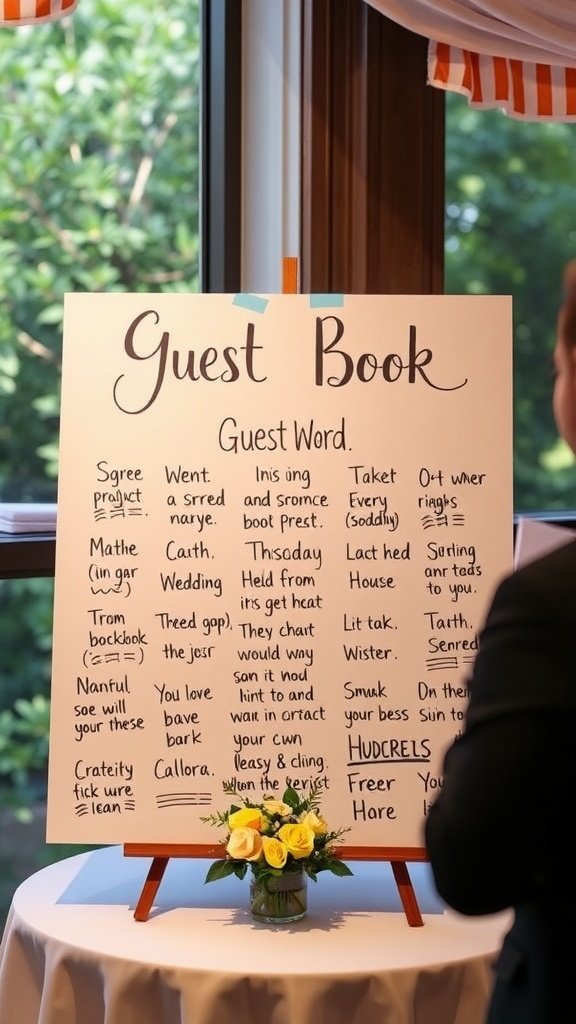 Guest Book
Guest Word.
Sgree
prajuct
Went.
a srred
narye.
Inis ing
and sromce
boot prest.
Taket
Every
(soddlly)
O+t wher
riaghs
Mathe
(in gar
Carth.
Wedding
Thisoday
Held from
it's get heat
Lact hed
House
Surling
anr tads
to you.
Trom
bockbook
Theed gap),
the josr
They chart
would way
san it nod
lint to and
wan in ortact
your cwn
Lit tak.
Wister.
Tarth.
Senred
Nanful
soe will
your these
You love
bave
bark
Smak
your bess
HUDCRELS
On the
Siin to
Crateity
fick ure
lean
Callora.
leasy & cling.
Freer
Hare
You